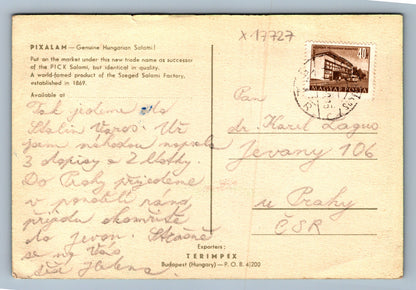 PIXALAM — Genuine Hungarian Salami!
Put on the market under this new trade name as successor
of the PICK Salami, but identical in quality.
A world-famed product of the Szeged Salami Factory,
established in 1869.
Available at
X-17727
40
MAGYAR POSTA
Tak jedeme do
Stalin Város. Už
jsem náhodou napsala
3 dopisy a 2 lístky.
Do Prahy přijedeme
v pondělí ráno
přijdu okamžitě
do Jevan. Strašně
se na Vás
těší Helena.
Pan
dr. Karel Lagus
Jevany 106
u Prahy
ČSR
Exporters:
TERIMPEX
Budapest (Hungary) — P. O. B. 4/200